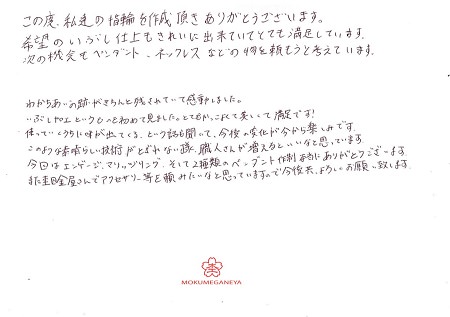 この度、私達の指輪を作成頂きありがとうございます。
希望のいぶし仕上もきれいに出来ていてとても満足しています。
次の機会もペンダント、ネックレスなどの物を頼もうと考えています。
わかちあいの跡がきちんと残されていて感動しました。
いぶしや工 というものを初めて見ました。とてもかっこよくて美しくて満足です！
使っていくうちに味が出てくる、という話も聞いて、今後の変化が今から楽しみです。
このような素晴らしい技術がとだえない様、職人さんが増えるといいなと思っています。
今回はエンゲージ、マリッジリング、そして2種類のペンダント作制 本当にありがとうございます
また杢目金屋さんでアクセサリー等を頼みたいなと思っていますので今後共、よろしくお願い致します。
MOKUMEGANEYA